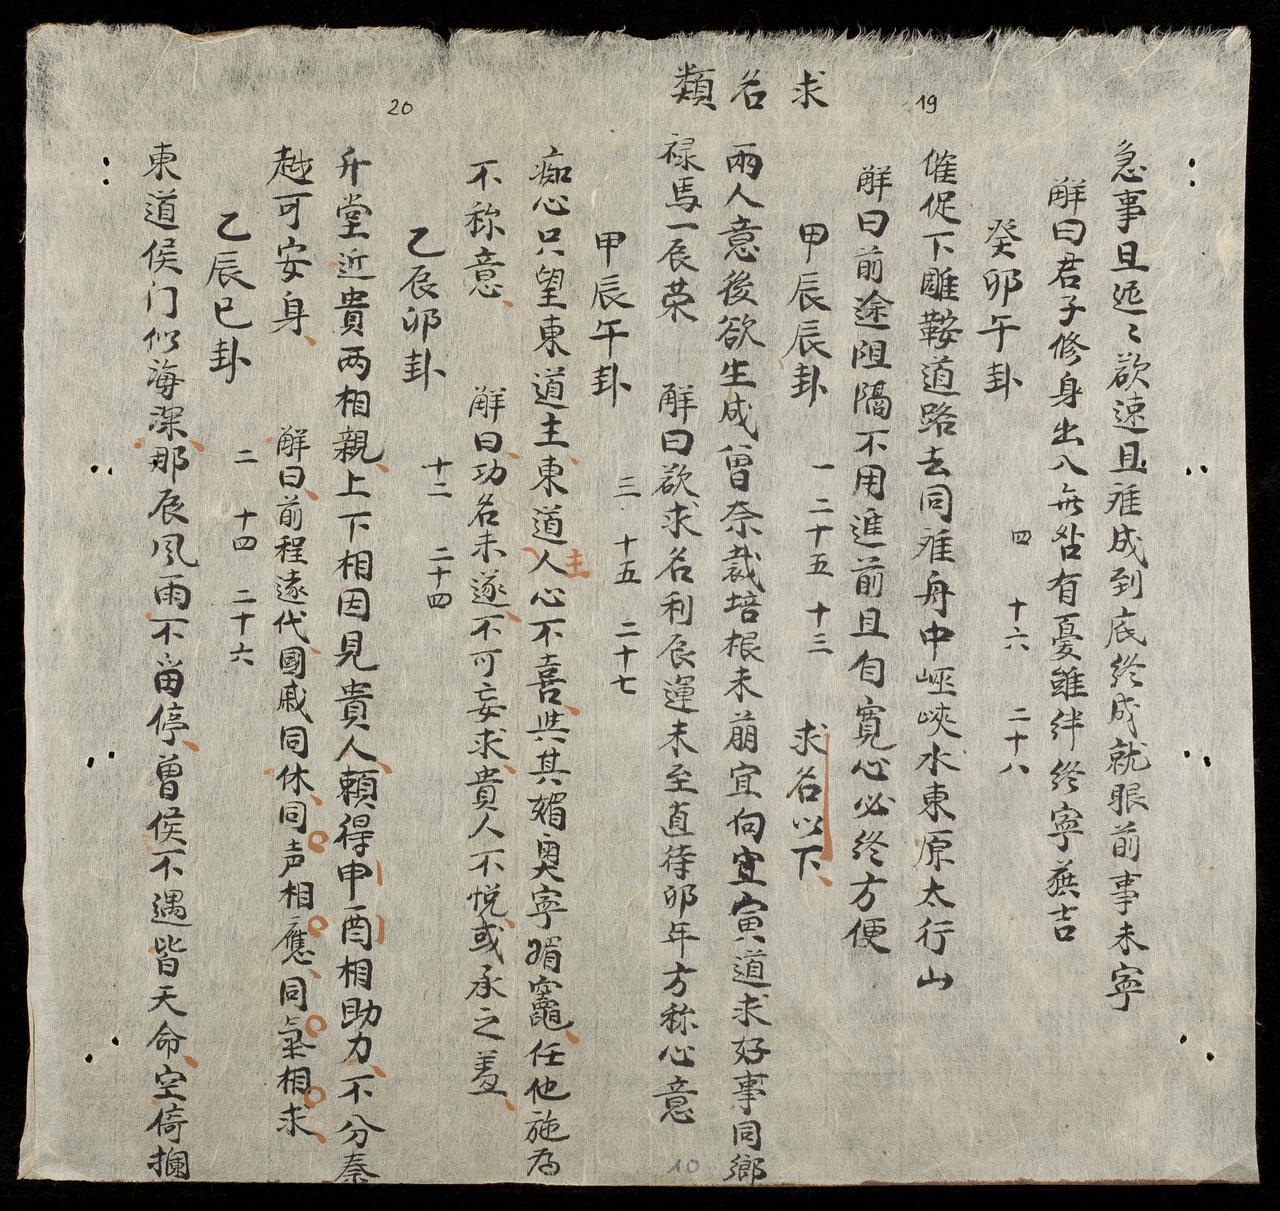 19
急事且迟〻欲速且难成到底终成就眼前事未寧
解曰君子修身出入無咎有憂雖绊终寧無吉
癸卯午卦 四 十六 二十八
催促下雕鞍道路去同难舟中峡水東原太行山
解曰前途阻隔不用進前且自寛心必终方便
求名類
甲辰辰卦 一 二十五 十三 求名以下
兩人意後欲生成曾奈裁培根未萠宜向寅道求好事同鄉
禄馬一辰荣 解曰欲求名利辰運未至直待卯年方称心意
甲辰午卦 三 十五 二十七
痴心只望東道主東道人主心不喜與其媚奥寧媚竈任他施为
不称意 解曰功名未遂不可妄求貴人不悦或承之羞
20
乙辰卯卦 十二 二十四
升堂近貴两相親上下相因見貴人頼得申酉相助力不分秦
越可安身 解曰前程遠代國戚同休同声相應同氣相求
乙辰巳卦 二 十四 二十六
東道侯门似海深那辰風雨不畄停曾侯不遇皆天命空倚攔
10